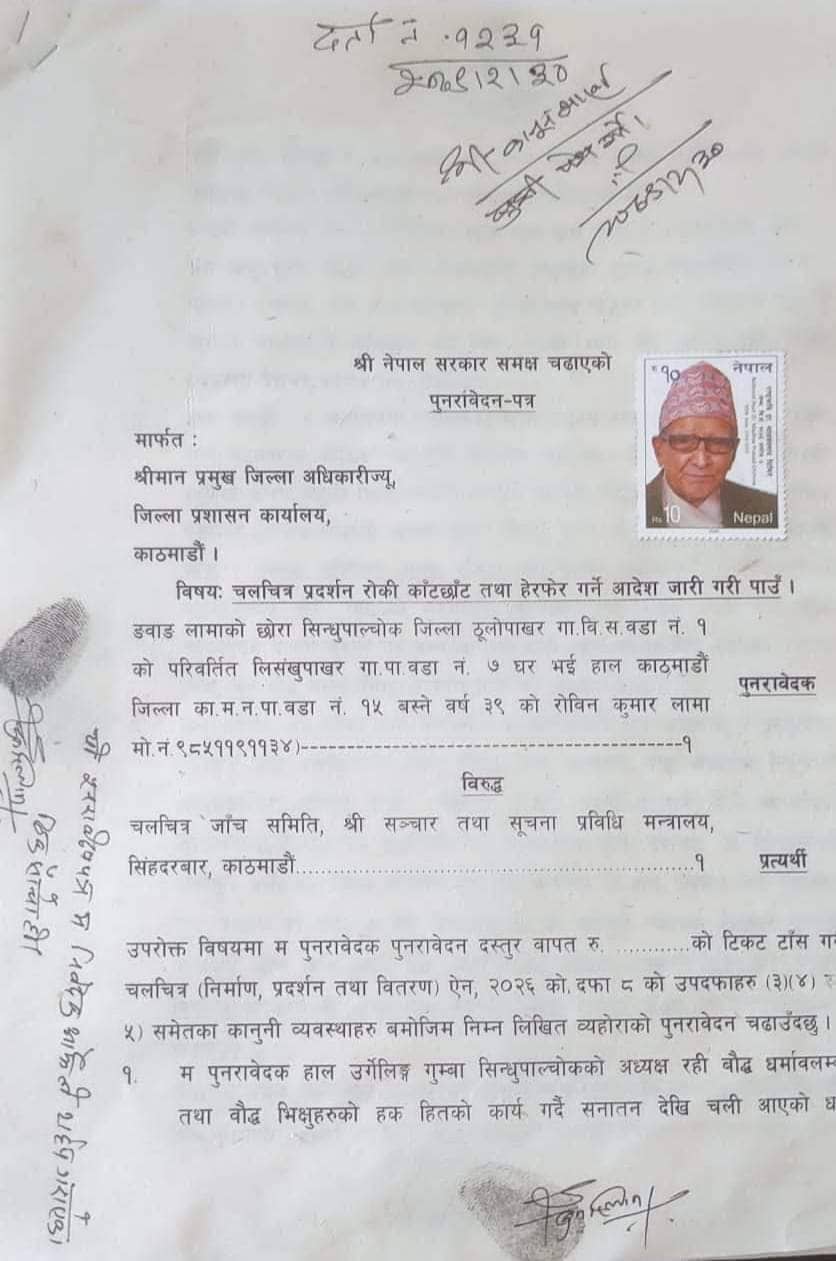 दर्ता नं. १२३१
२०८१।२।३०
श्री कानून शाखा
श्री नेपाल सरकार समक्ष चढाएको
पुनरावेदन-पत्र
रु १० नेपाल
Rs 10 Nepal
मार्फत :
श्रीमान प्रमुख जिल्ला अधिकारीज्यू,
जिल्ला प्रशासन कार्यालय,
काठमाडौं ।
विषयः चलचित्र प्रदर्शन रोकी काँटछाँट तथा हेरफेर गर्ने आदेश जारी गरी पाउँ ।
ङवाङ लामाको छोरा सिन्धुपाल्चोक जिल्ला ठूलोपाखर गा.वि.स.वडा नं. १
को परिवर्तित लिसंखुपाखर गा.पा.वडा नं. ७ घर भई हाल काठमाडौं
जिल्ला का.म.न.पा.वडा नं. १५ बस्ने वर्ष ३९ को रोविन कुमार लामा
पुनरावेदक
मो.नं.९८५११९११३४)------------------------------------------१
विरुद्ध
चलचित्र जाँच समिति, श्री सञ्चार तथा सूचना प्रविधि मन्त्रालय,
सिंहदरबार, काठमाडौं.......................................................१ प्रत्यर्थी
उपरोक्त विषयमा म पुनरावेदक पुनरावेदन दस्तुर वापत रु. ............को टिकट टाँस
चलचित्र (निर्माण, प्रदर्शन तथा वितरण) ऐन, २०२६ को.दफा ८ को उपदफाहरु (३)(४)
५) समेतका कानुनी व्यवस्थाहरु बमोजिम निम्न लिखित व्यहोराको पुनरावेदन चढाउँदछु ।
१. म पुनरावेदक हाल उर्गेलिङ्ग गुम्बा सिन्धुपाल्चोकको अध्यक्ष रही बौद्ध
तथा वौद्ध भिक्षुहरुको हक हितको कार्य गर्दै सनातन देखि चली आएको